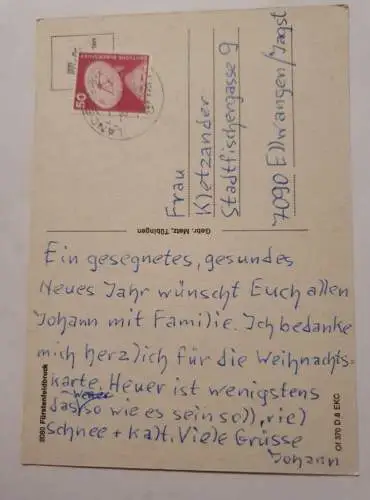 Ein gesegnetes, gesundes
Neues Jahr wünscht Euch allen
Johann mit Familie. Ich bedanke
mich herzlich für die Weihnachts-
karte. Heuer ist wenigstens
das Wetter so wie es sein soll, viel
Schnee + kalt. Viele Grüsse
Johann
Frau
Kletzander
Stadtfischergasse 9
7090 Ellwangen/Jagst
Gebr. Metz, Tübingen
8080 Fürstenfeldbruck
Of 370 D & EKC
DEUTSCHE BUNDESPOST
50